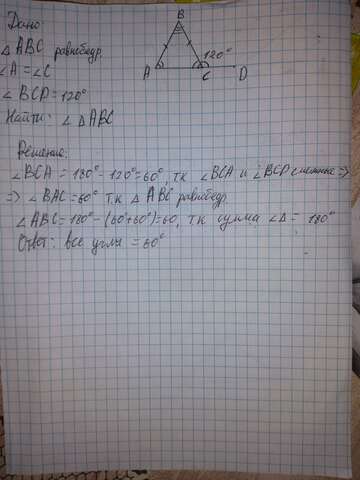 Дано:
△ABC равнобедр.
∠A = ∠C
∠BCD = 120°
Найти: ∠ △ABC
B
120°
A
C
D
Решение:
∠BCA = 180° - 120° = 60°, тк ∠BCA и ∠BCD смежные =>
=> ∠BAC = 60° т.к △ ABC равнобедр.
∠ABC = 180° - (60°+60°) = 60, тк сумма ∠△ = 180°
Ответ: все углы = 60°